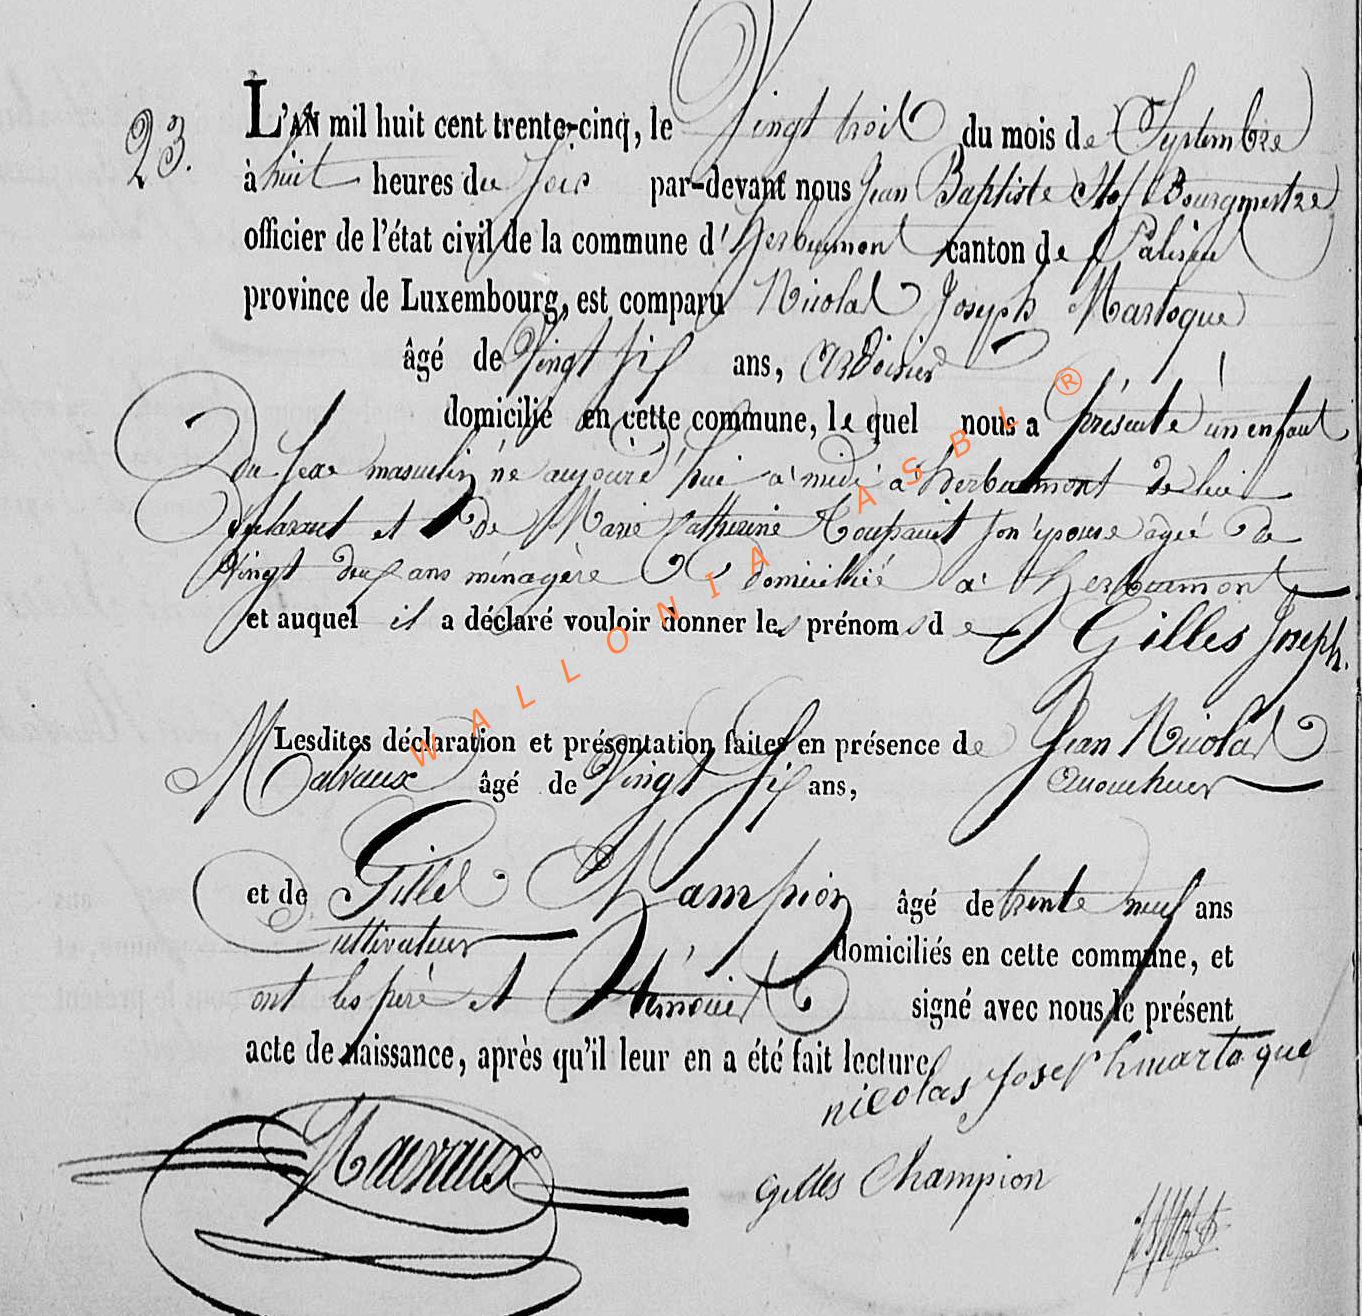 23.
L'AN mil huit cent trente-cinq, le Vingt trois du mois de Septembre
à huit heures du soir par-devant nous Jean Baptiste Bourgmestre
officier de l'état civil de la commune d'herbeumont canton de Paliseu
province de Luxembourg, est comparu Nicolas Joseph Martoque
âgé de Vingt six ans, ardoisier
domicilié en cette commune, le quel nous a présenté un enfant
du sexe masculin né aujourd'hui à midi à herbeumont de lui
déclarant et de Marie Catherine son épouse agée de
Vingt deux ans ménagère domiciliée à herbeumont
et auquel il a déclaré vouloir donner les prénoms de Gilles Joseph.
Lesdites déclaration et présentation faites en présence de Jean Nicolas
Malvaux âgé de Vingt six ans,
et de Gilles Champion âgé de trente neuf ans
cultivateur domiciliés en cette commune, et
ont les père et témoins signé avec nous le présent
acte de naissance, après qu'il leur en a été fait lecture
nicolas Joseph martoque
Malvaux
Gilles Champion
WALLONIA ASBL ®